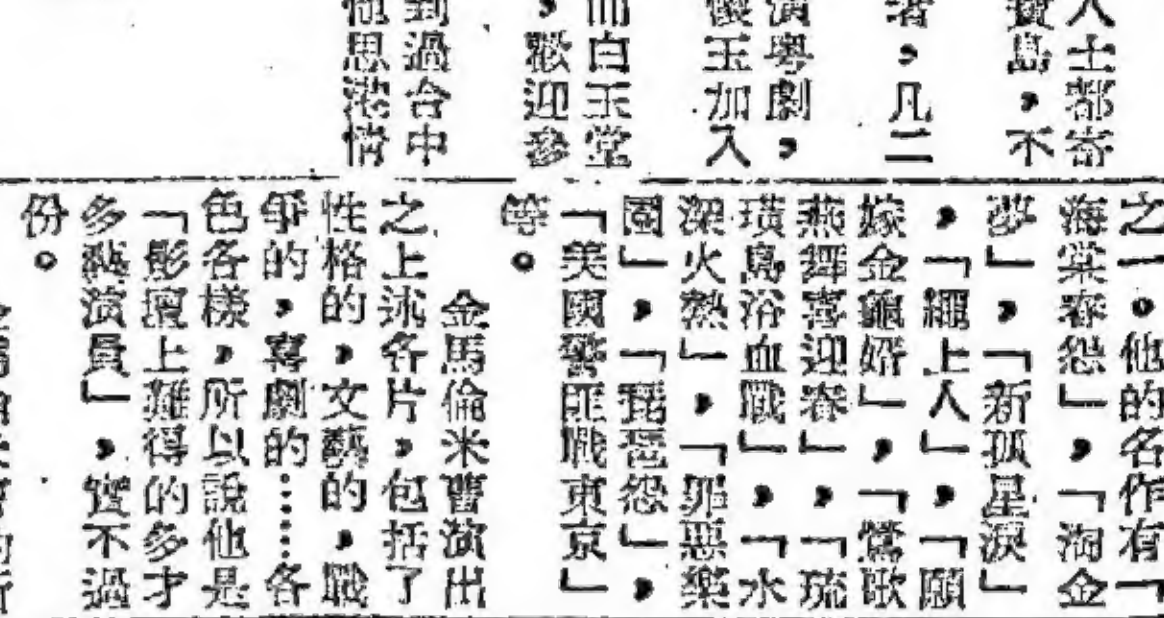 人士都寄
寶島，不
者，凡二
演粵劇，
懷玉加入
而白玉堂
，歡迎參
到過台中
他思情
之一。他的名作有「
海棠春怨」，「淘金
夢」，「新孤星淚」
，「繩上人」，「願
嫁金龜婿」，「鶯歌
燕舞喜迎春」，「琉
璜島浴血戰」，「水
深火熱」，「罪惡樂
園」，「琵琶怨」，
「美國警匪戰東京」
等。
金馬倫米曹演出
之上述各片，包括了
性格的，文藝的，戰
爭的，喜劇的……各
色各樣，所以說他是
「影壇上難得的多才
多藝演員」，實不過
份。